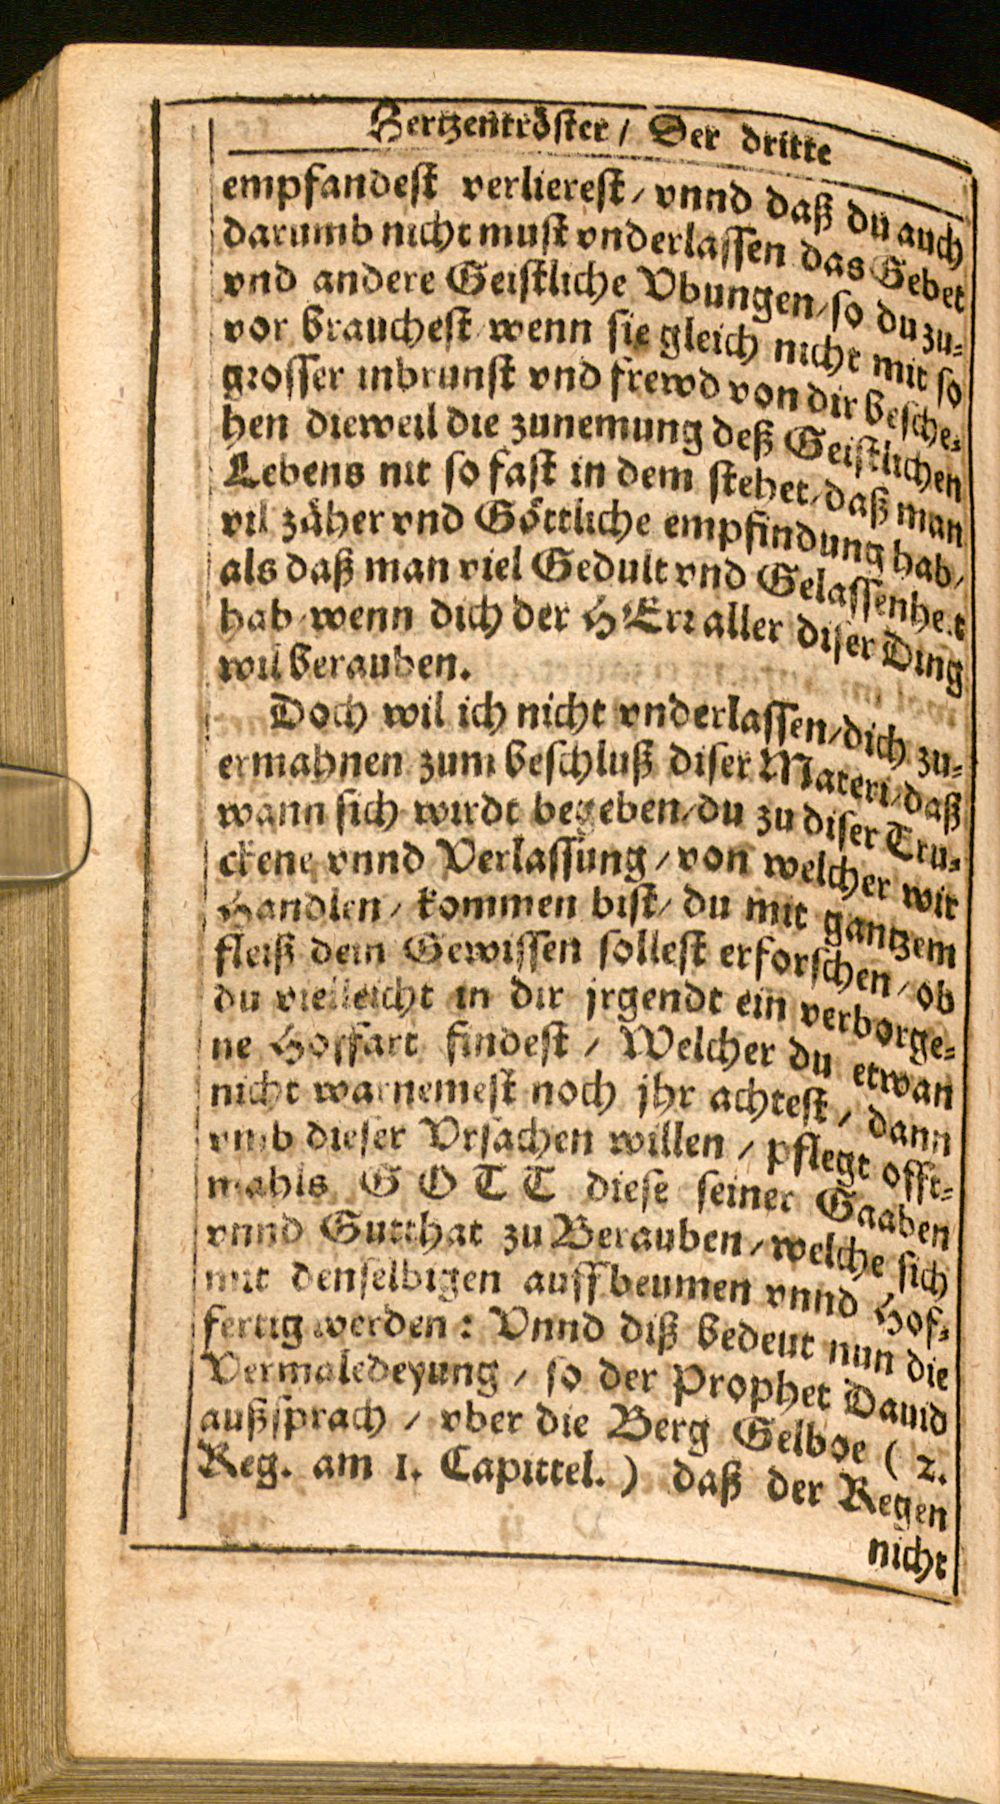 Hertzentröster / Der dritte
empfandest verlierest / vnnd daß du auch
darumb nicht must vnderlassen das Gebet
vnd andere Geistliche Vbungen / so du zu-
vor brauchest / wenn sie gleich nicht mit so
grosser inbrunst vnd frewd von dir besche-
hen dieweil die zunemung deß Geistlichen
Lebens nit so fast in dem stehet / daß man
vil zäher vnd Göttliche empfindung hab /
als daß man viel Gedult vnd Gelassenheit
hab / wenn dich der HErr aller diser Ding
wil berauben.
Doch wil ich nicht vnderlassen / dich zu-
ermahnen zum beschluß diser Materi / daß
wann sich wirdt begeben / du zu diser Tru-
ckene vnnd Verlassung / von welcher wir
Handlen / kommen bist / du mit gantzem
fleiß dein Gewissen sollest erforschen / ob
du vielleicht in dir jrgendt ein verborge-
ne Hoffart findest / Welcher du etwan
nicht warnemest noch jhr achtest / dann
vmb dieser Vrsachen willen / pflegt offt-
mahls GOTT diese seiner Gaaben
vnnd Gutthat zu Berauben / welche sich
mit denselbigen auffbeumen vnnd Hof-
fertig werden : Vnnd diß bedeut nun die
Vermaledeyung / so der Prophet Dauid
außsprach / vber die Berg Gelboe ( 2.
Reg. am 1. Capittel. ) daß der Regen
nicht